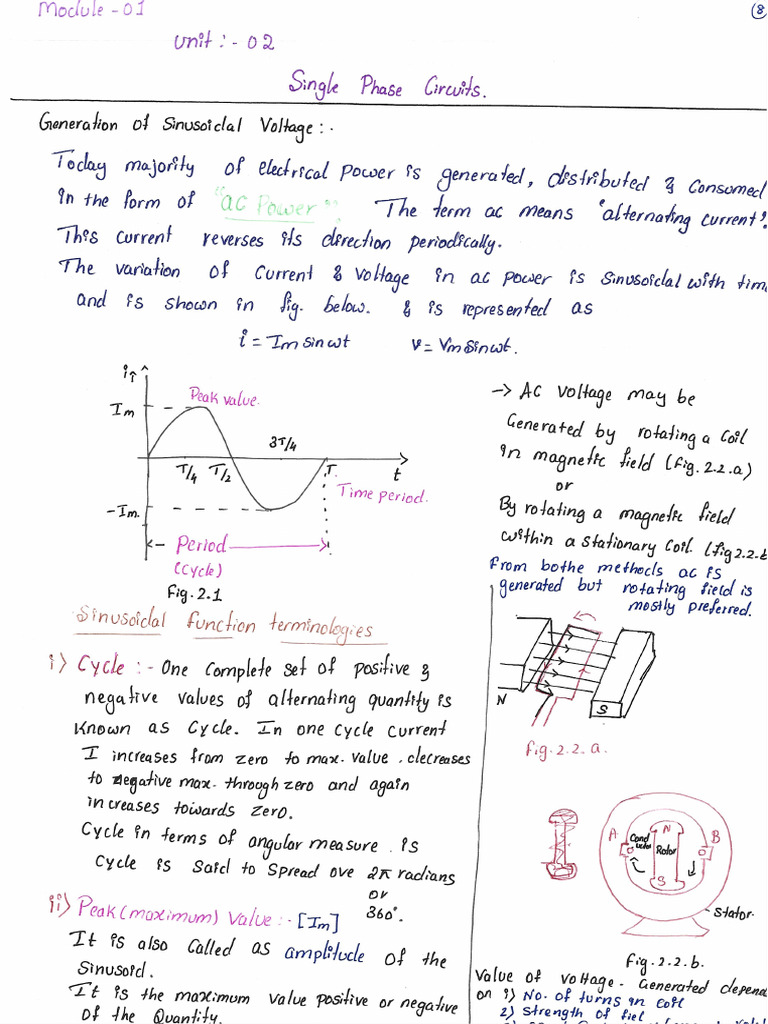 Module - 01
8
Unit :- 02
Single Phase Circuits.
Generation of Sinusoidal Voltage :-
Today majority of electrical power is generated, distributed & Consumed
in the form of "ac Power". The term ac means 'alternating current'.
This current reverses its direction periodically.
The variation of current & voltage in ac power is sinusoidal with time
and is shown in fig. below. & is represented as
i = Im sin wt v = Vm Sin wt.
i↑
Im
Peak value.
3T/4
T/4 T/2 T. t
Time period.
-Im.
Period
(Cycle)
Fig. 2.1
-> AC Voltage may be
Generated by rotating a Coil
in magnetic field (fig. 2.2.a)
or
By rotating a magnetic field
within a stationary coil. (fig 2.2.b
From bothe methods ac is
generated but rotating field is
mostly preferred.
N
S
Fig. 2.2.a.
Sinusoidal function terminologies
i) Cycle :- One complete set of positive &
negative values of alternating quantity is
known as cycle. In one cycle current
I increases from zero to max. value. decreases
to negative max. through zero and again
increases towards zero.
Cycle in terms of angular measure. is
Cycle is said to spread ove 2π radians
or
360°.
ii) Peak (maximum) Value :- [Im]
It is also called as amplitude of the
sinusoid.
It is the maximum value positive or negative
of the Quantity.
A
Cond
uctor
N
Rotor
S
B
Stator.
Fig. 2.2.b.
Value of voltage - Generated depend
on 1) No. of turns in coil
2) Strength of fiel